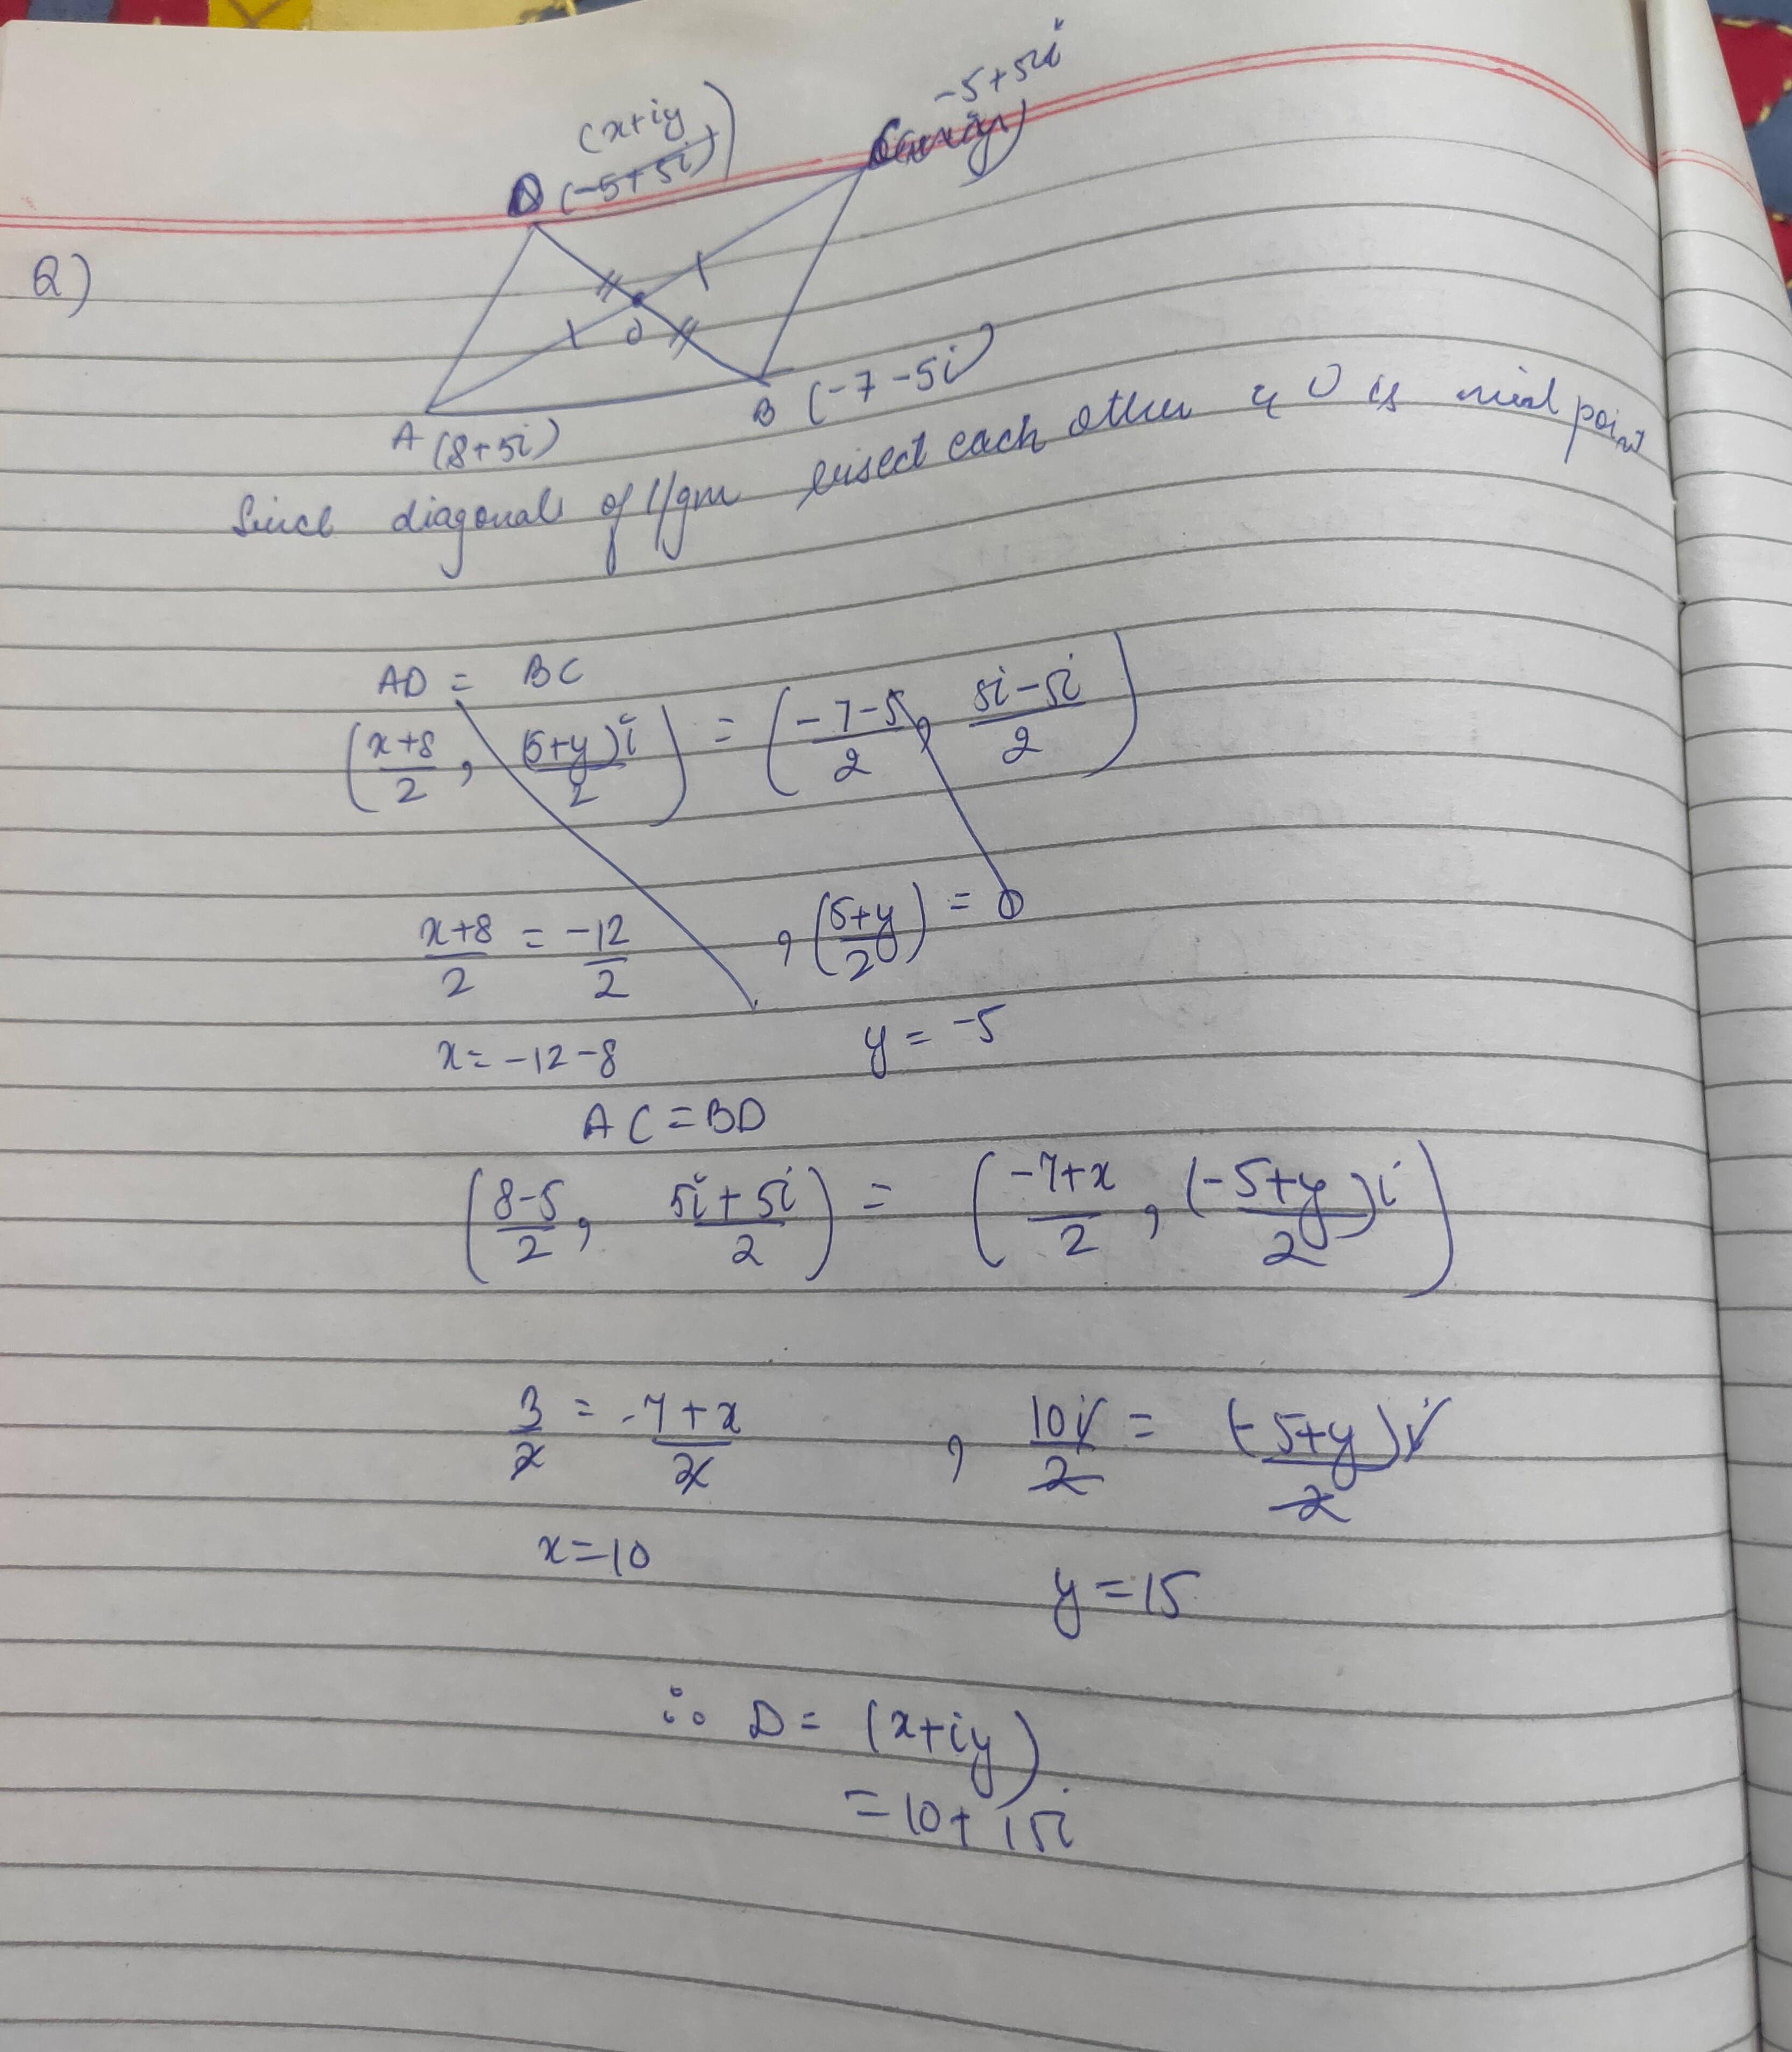 -5+5i
(x+iy)
D (-5+5i)
C(x+iy)
Q)
O
B (-7-5i)
A (8+5i)
Since diagonals of ||gm bisect each other & O is mid point
AD = BC
(x+8/2, (5+y)i/2) = (-7-5/2, 5i-5i/2)
x+8/2 = -12/2 , (5+y/2) = 0
x = -12-8 y = -5
AC = BD
(8-5/2, 5i+5i/2) = (-7+x/2, (-5+y)i/2)
3/2 = -7+x/2 , 10i/2 = (-5+y)i/2
x=10
y=15
∴ D = (x+iy)
= 10+15i